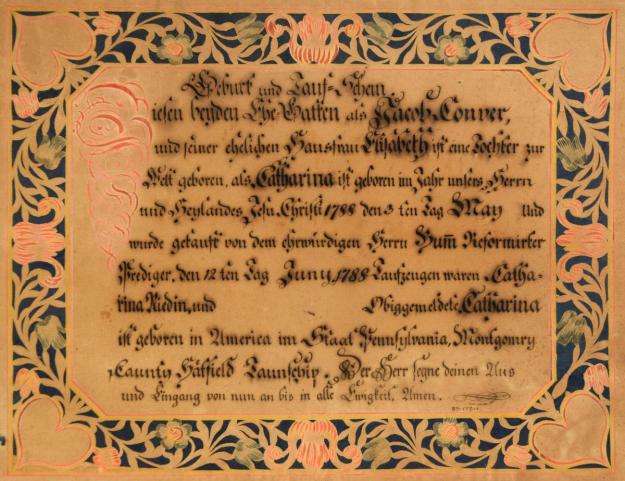 Geburt und Tauf-Schein
iesen beyden Ehe-Gatten als Jacob Conver,
und seiner ehelichen Hausfrau Elisabeth ist eine Tochter zur
Welt geboren, als Catharina ist geboren im Jahr unsers Herrn
und Heylandes Jesu Christi 1788 den 3 ten Tag May Und
wurde getauft von dem ehrwürdigen Herrn Reformirter
Prediger, den 12 ten Tag Juny 1788 Taufzeugen waren Catha-
rina Riedin, und Obiggemeldete Catharina
ist geboren in America im Staat Pennsylvania, Montgomry
Caunty Hatfield Taunschip. Der Herr segne deinen Aus
und Eingang von nun an bis in alle Ewigkeit, Amen.